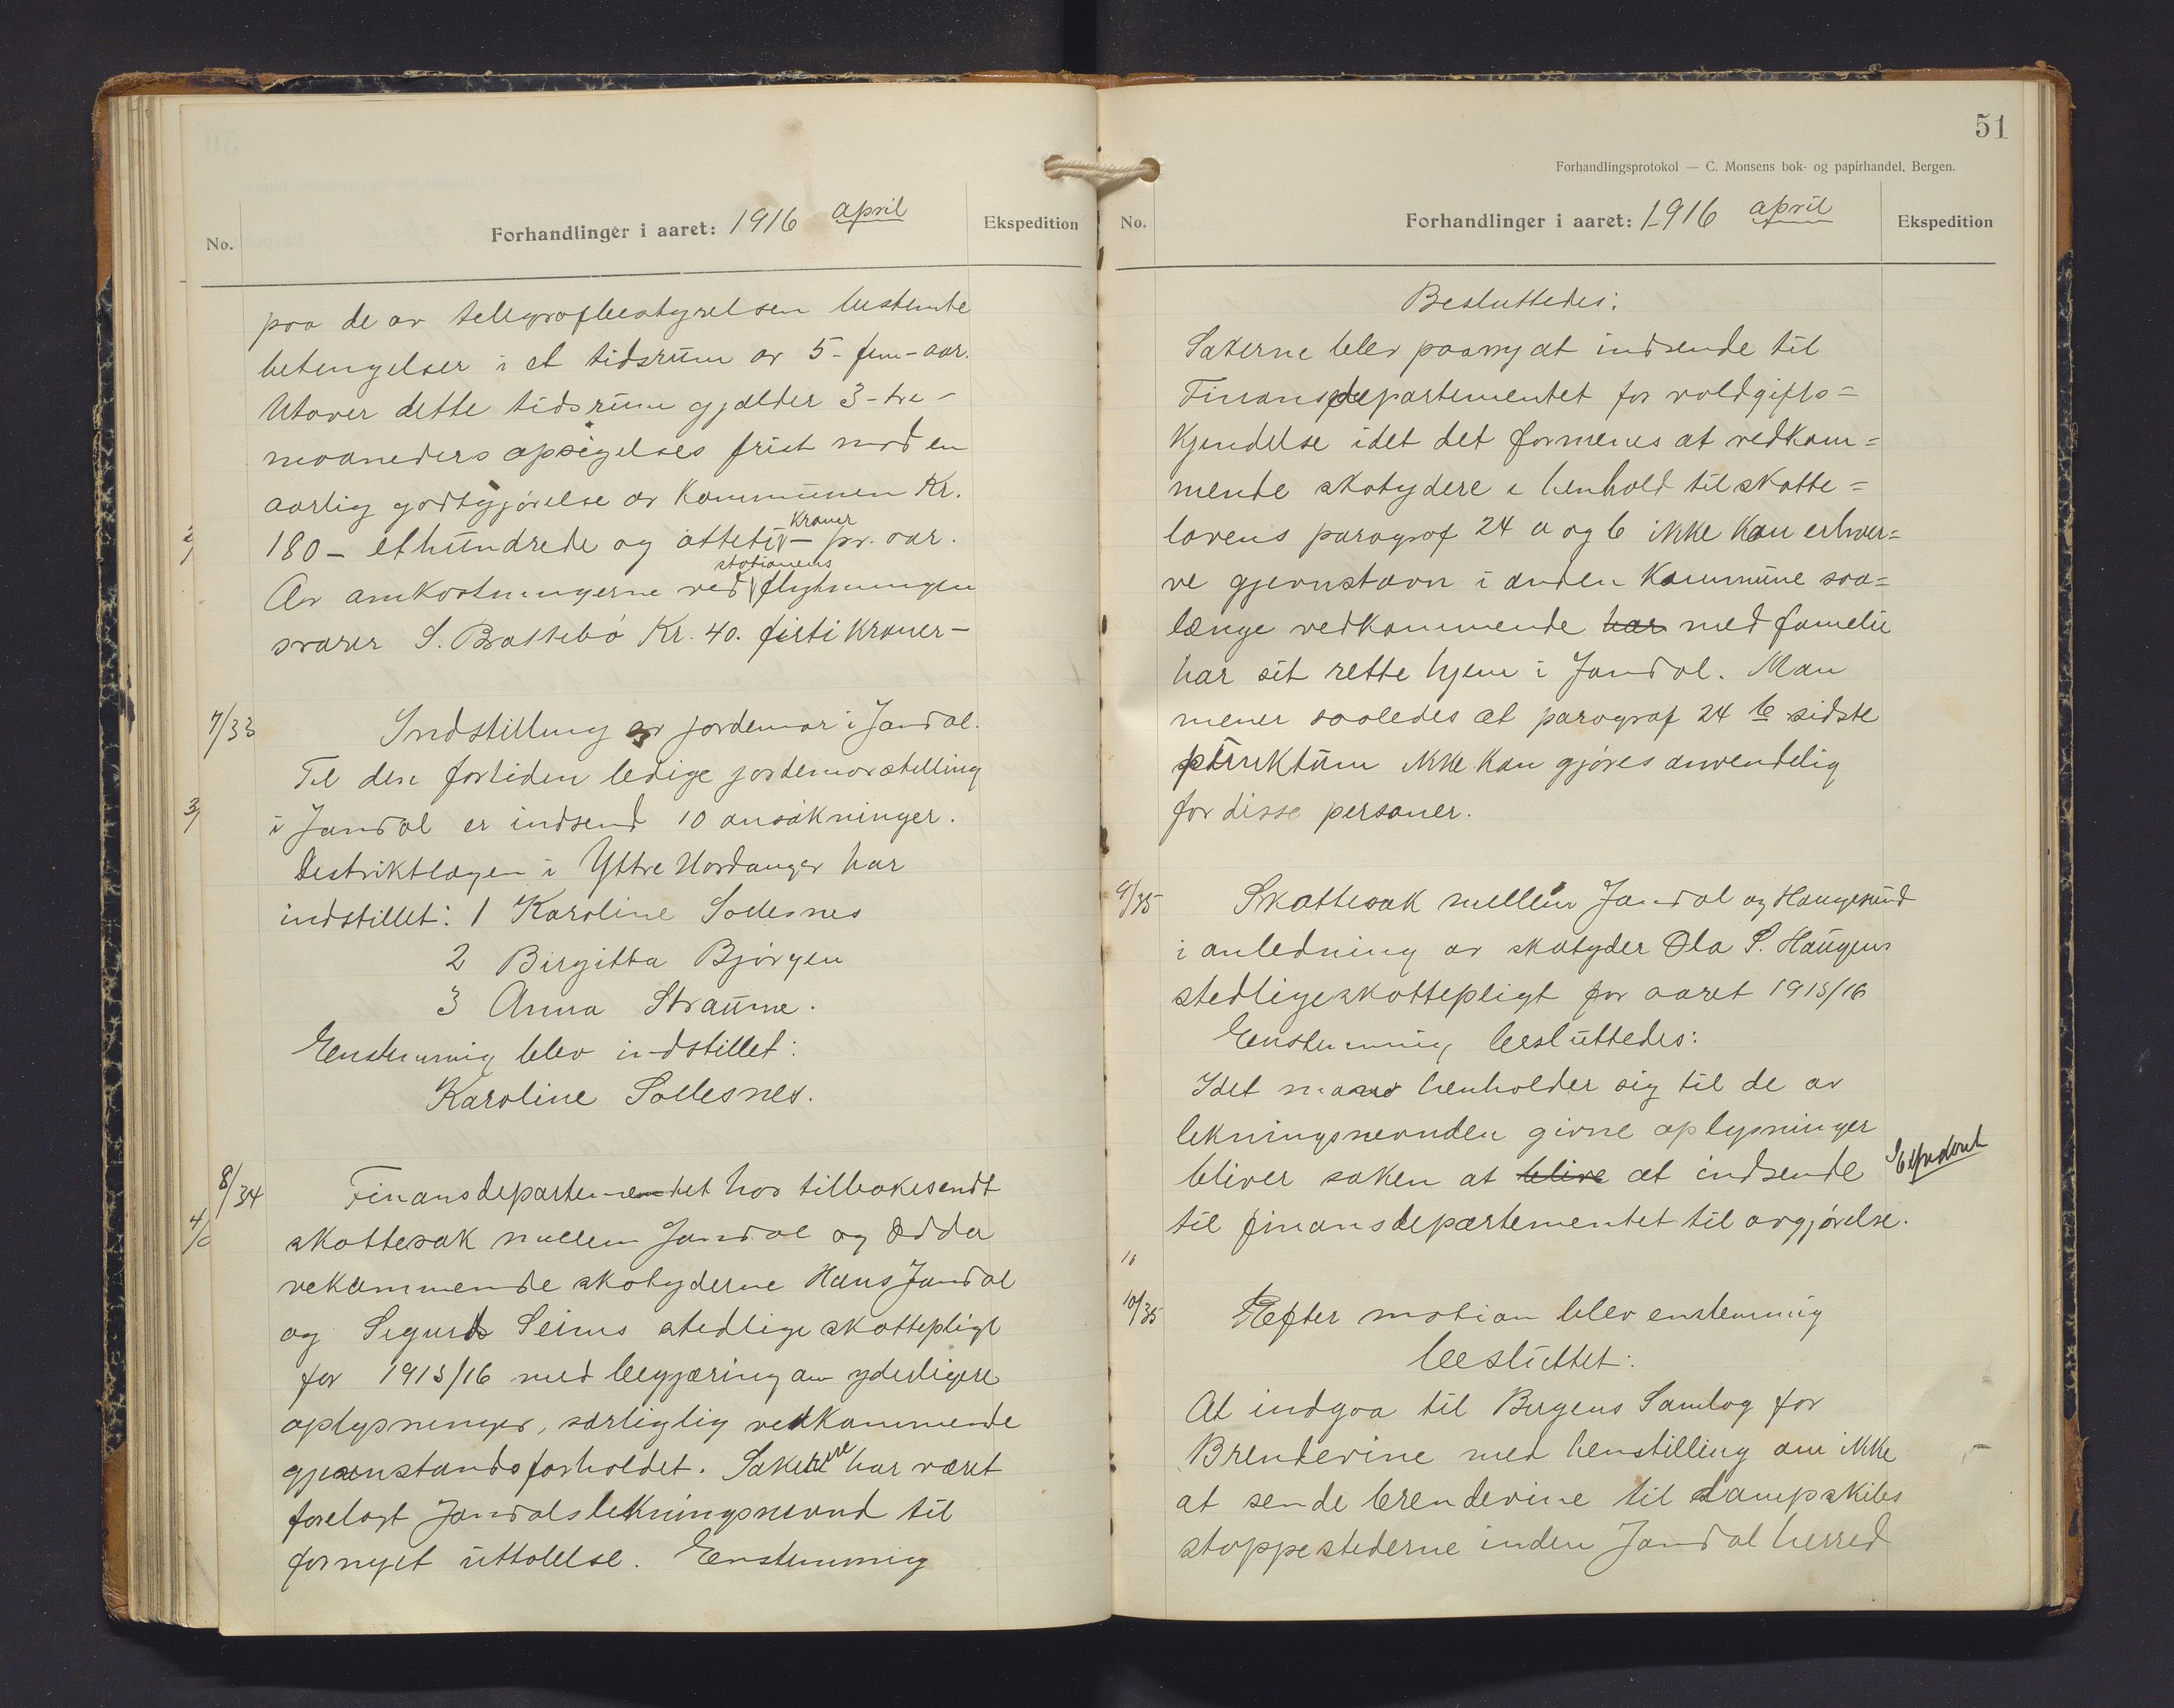 No.
Forhandlinger i aaret: 1916 april
Ekspedition
paa de av telegrafbestyrelsen bestemte
betingelser i et tidsrum av 5 - fem - aar.
Utover dette tidsrum gjælder 3 - tre -
maaneders opsigelses frist mod en
aarlig godtgjørelse av Kommunen Kr.
180 - ethundrede og ottetiv - kroner pr. aar.
Av omkostningerne ved stationens flytningen
svarer S. Brattebø Kr. 40. firti Kroner -
7/33
Indstilling av jordemor i Jondal.
Til den fortiden ledige jordemorstelling
i Jondal er indsend 10 ansøkninger.
Destriktlægen i Yttre Hardanger har
indstillet: 1 Karoline Sollesnes
2 Birgitta Bjørgen
3 Anna Straume.
Enstemmig blev indstillet:
Karoline Sollesnes.
8/34
Finansdepartementet har tilbakesendt
skattesak mellem Jondal og Odda
vekommende skatyderne Hans Jondal
og Sigurd Seims stedlige skattepligt
for 1915/16 med begjæring om yderligere
oplysninger, særliglig vedkommende
gjævnstandsforholdet. Sakerne har været
forelagt Jondals lekningsnevnd til
fornyet uttalelse. Enstemmig
51
Forhandlingsprotokol — C. Monsens bok- og papirhandel, Bergen.
No.
Forhandlinger i aaret: 1916 april
Ekspedition
Besluttedes:
Sakerne blev paany at indsende til
Finansdepartementet for voldgifts=
Kjendelse idet det formenes at vedkom=
mende skatydere i henhold til skatte=
lovens paragraf 24 a og b ikke kan erhver=
ve gjevnstavn i anden Kommune saa=
længe vedkommende har med familie
har sit rette hjem i Jondal. Man
mener saaledes at paragraf 24 b sidste
punktum ikke kan gjøres anvendelig
for disse personer.
9/35
Skattesak mellem Jondal og Haugesund
i anledning av skatyder Ola S. Haugens
stedlige skattepligt for aaret 1915/16
Enstemmig besluttedes:
Idet man henholder sig til de av
lekningsnevnden givne oplysninger
bliver saken at blive at indsende
Expedert
til finansdepartementet til avgjørelse.
10/35
Efter motion blev enstemmig
besluttet:
At indgaa til Bergens Samlag for
Brendevine med henstilling om ikke
at sende brendevine til dampskibs
stoppestederne inden Jondal herred